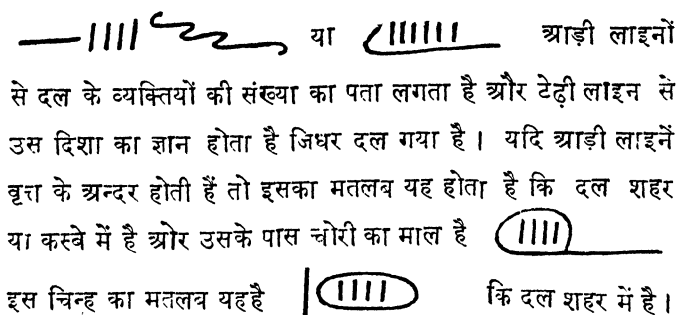 या आड़ी लाइनों
से दल के व्यक्तियों की संख्या का पता लगता है और टेढ़ी लाइन से
उस दिशा का ज्ञान होता है जिधर दल गया है। यदि आड़ी लाइनें
वृत्त के अन्दर होती हैं तो इसका मतलब यह होता है कि दल शहर
या कस्बे में है ओर उसके पास चोरी का माल है
इस चिन्ह का मतलब यहहै कि दल शहर में है।